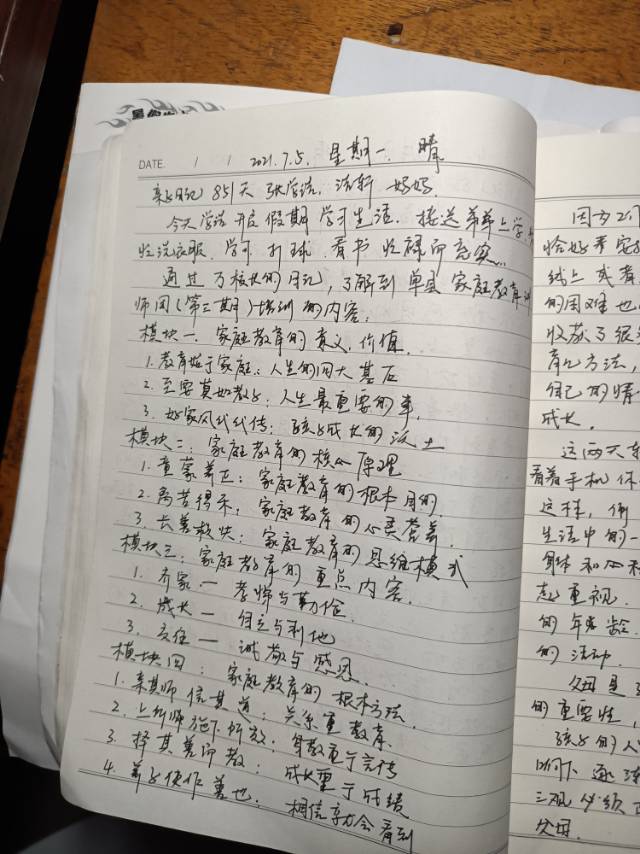 暑假
DATE. / / 2021.7.5. 星期一. 晴
亲子日记 851天 张学洁. 洁轩 好好.
今天学洁开启假期学习生活. 接送弟弟上学.
忙洗衣服. 学习. 打球. 看书 忙碌而充实...
通过万校长的日记, 了解到单县家庭教育讲
师团(第三期)培训的内容:
模块一. 家庭教育的意义、价值.
1. 教育始于家庭: 人生的四大基石
2. 至要莫如教子: 人生最重要的事.
3. 好家风代代传: 孩子成长的沃土
模块二: 家庭教育的核心原理
1. 童蒙养正: 家庭教育的根本目的.
2. 离苦得乐: 家庭教育的心灵营养.
3. 长善救失: 家庭教育的思维模式
模块三: 家庭教育的重点内容.
1. 齐家 — 孝师与勤俭.
2. 成长 — 自立与利他
3. 责任 — 诚敬与感恩.
模块四: 家庭教育的根本方法.
1. 亲其师信其道: 关系重教育.
2. 上所师施下所效: 身教重于言传
3. 择其善而教: 成长重于成绩
4. 养子使作善也. 相信亲力会看到
因为工作
恰好来安
线上或者
的困难也
收获了很
育儿方法,
自己的情
成长.
这两天
看着手机休
这样, 倘
生活中的一
身体和心
起重视.
的年龄
的活动.
父母是
的重要性
孩子的人
响下逐渐
三观必须
父母.